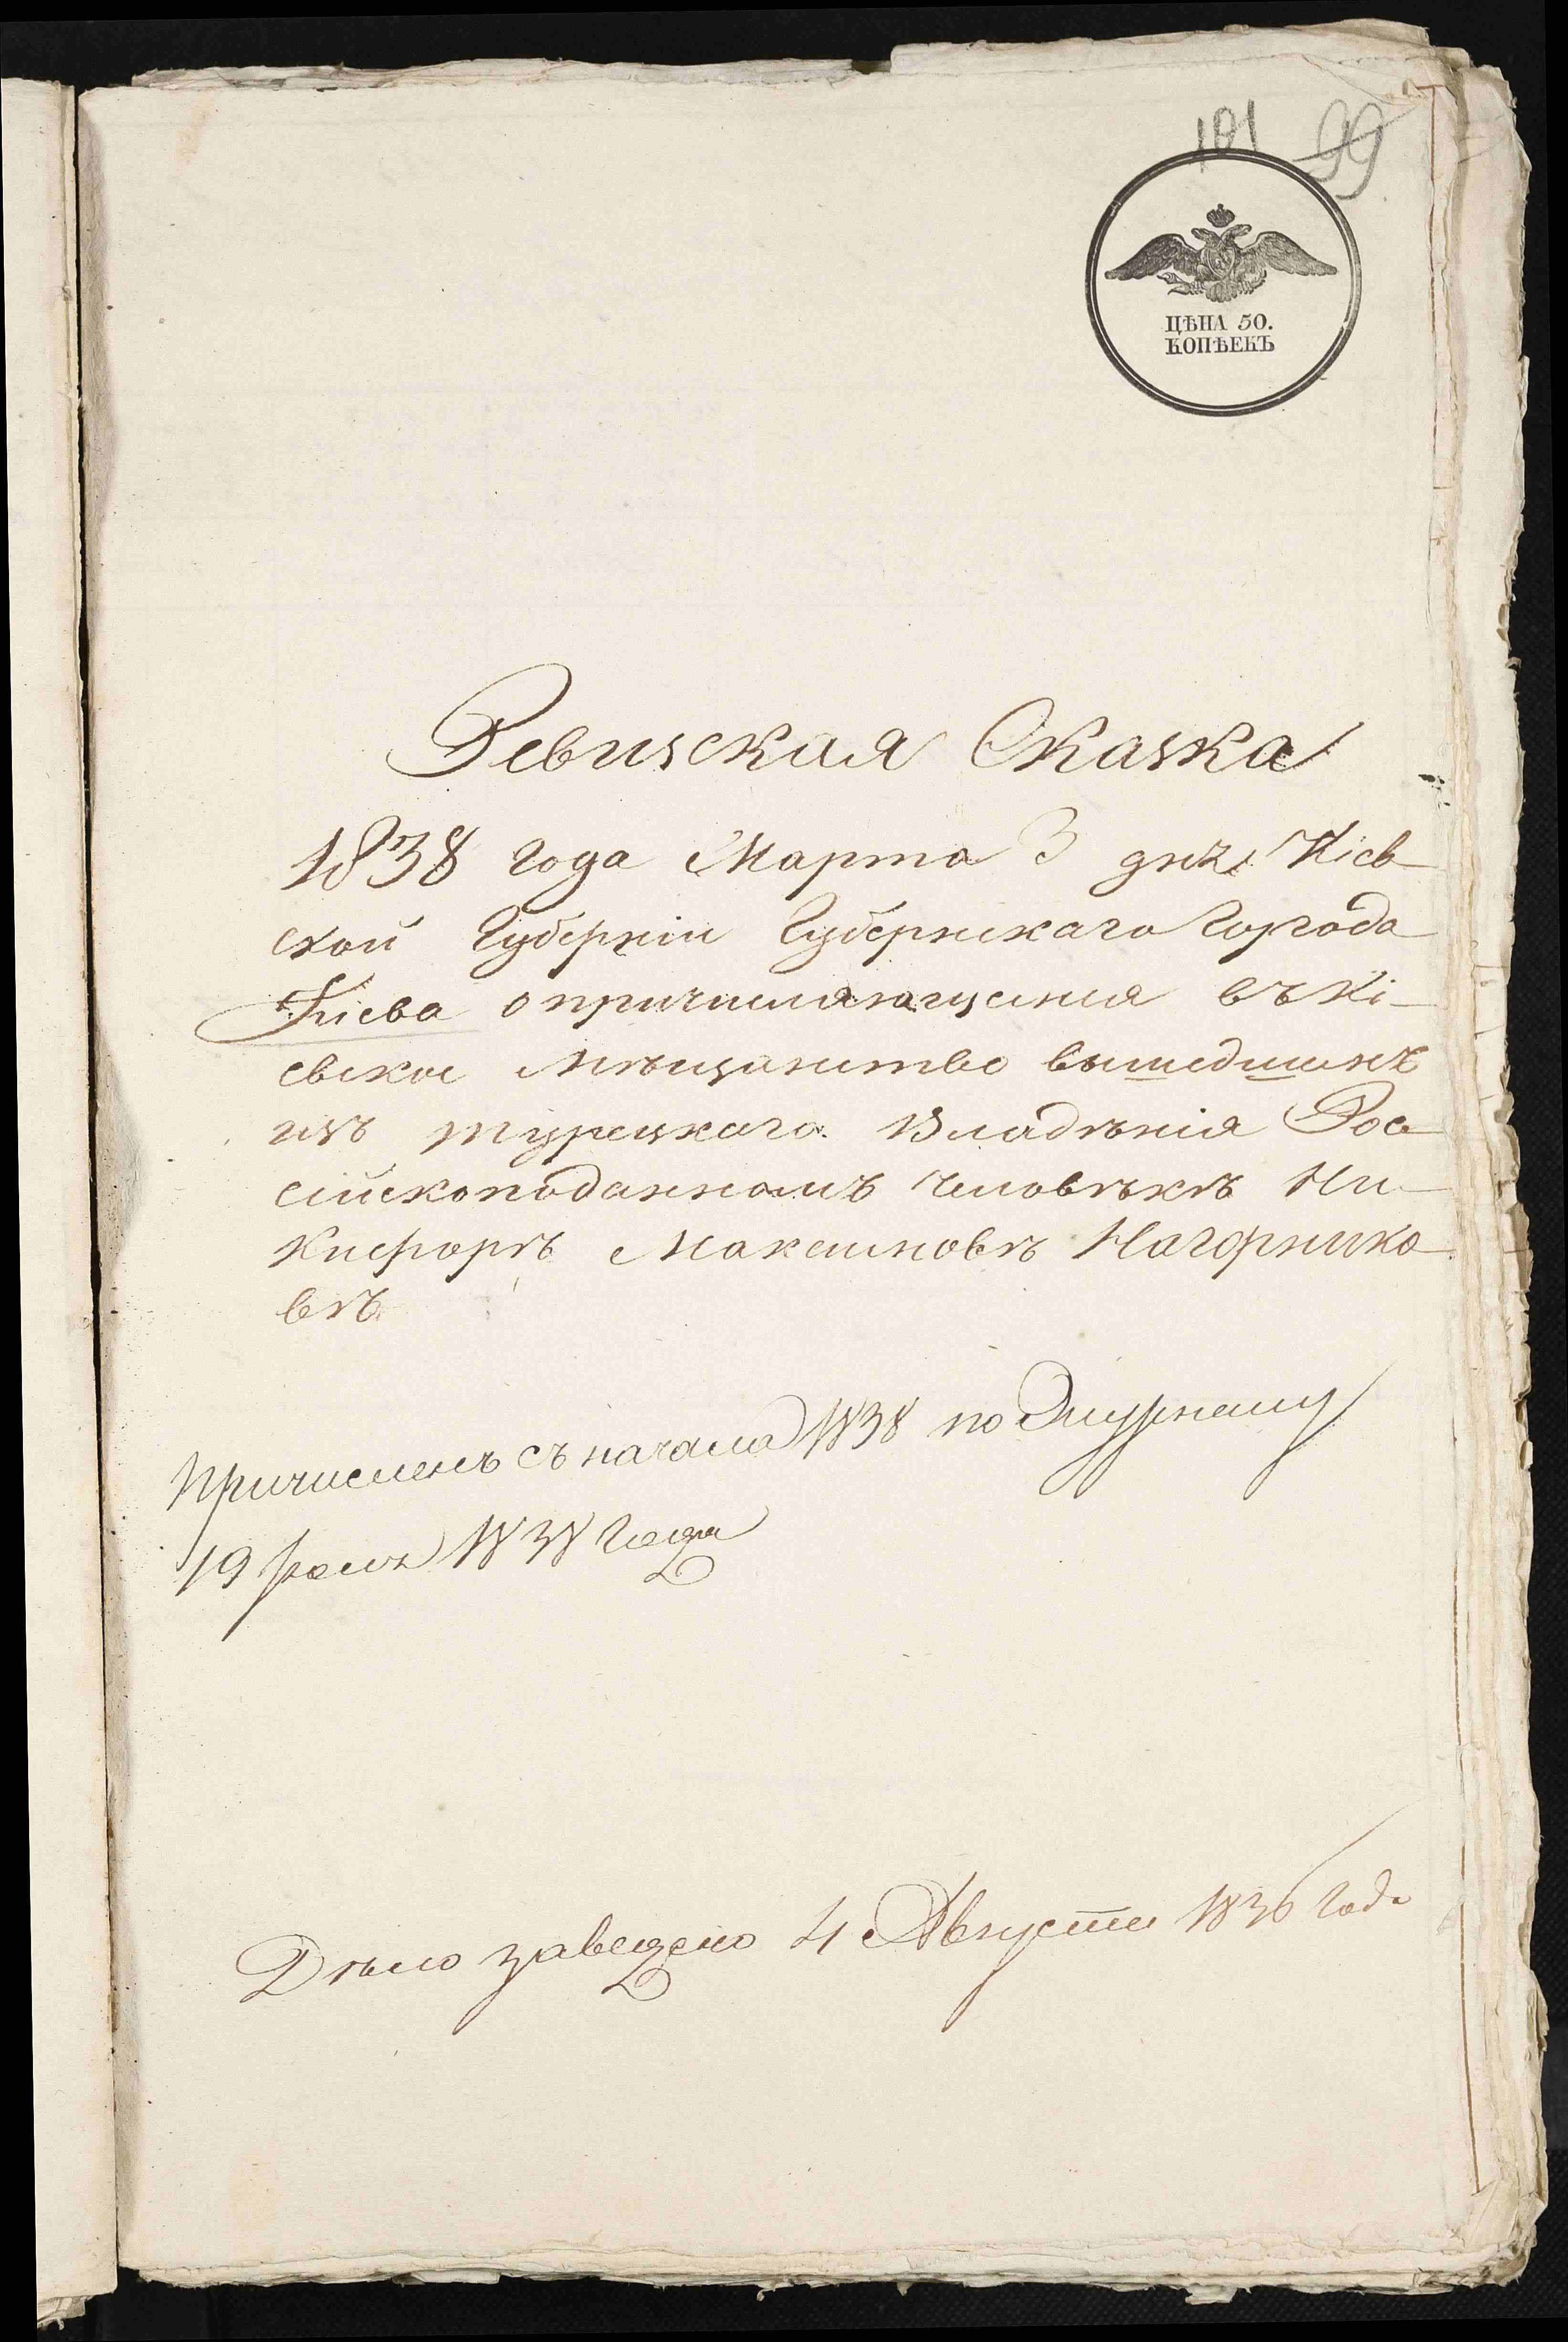 101 99
ЦѢНА 50.
КОПѢЕКЪ
Ревизская Сказка
1838 года Марта 3 дня Кіев-
ской Губерніи Губернскаго Города
Кіева о причисляющемся въ Кі-
евское Мѣщанство вышедшемъ
изъ турецкаго Владѣнія Рос-
сійскоподанномъ человѣкѣ Ни-
кифорѣ Максимовѣ Нагорнико-
вѣ
Причисленъ съ начала 1838 по Журналу
19 1838 года
Дѣло заведено 4 Августа 1836 года